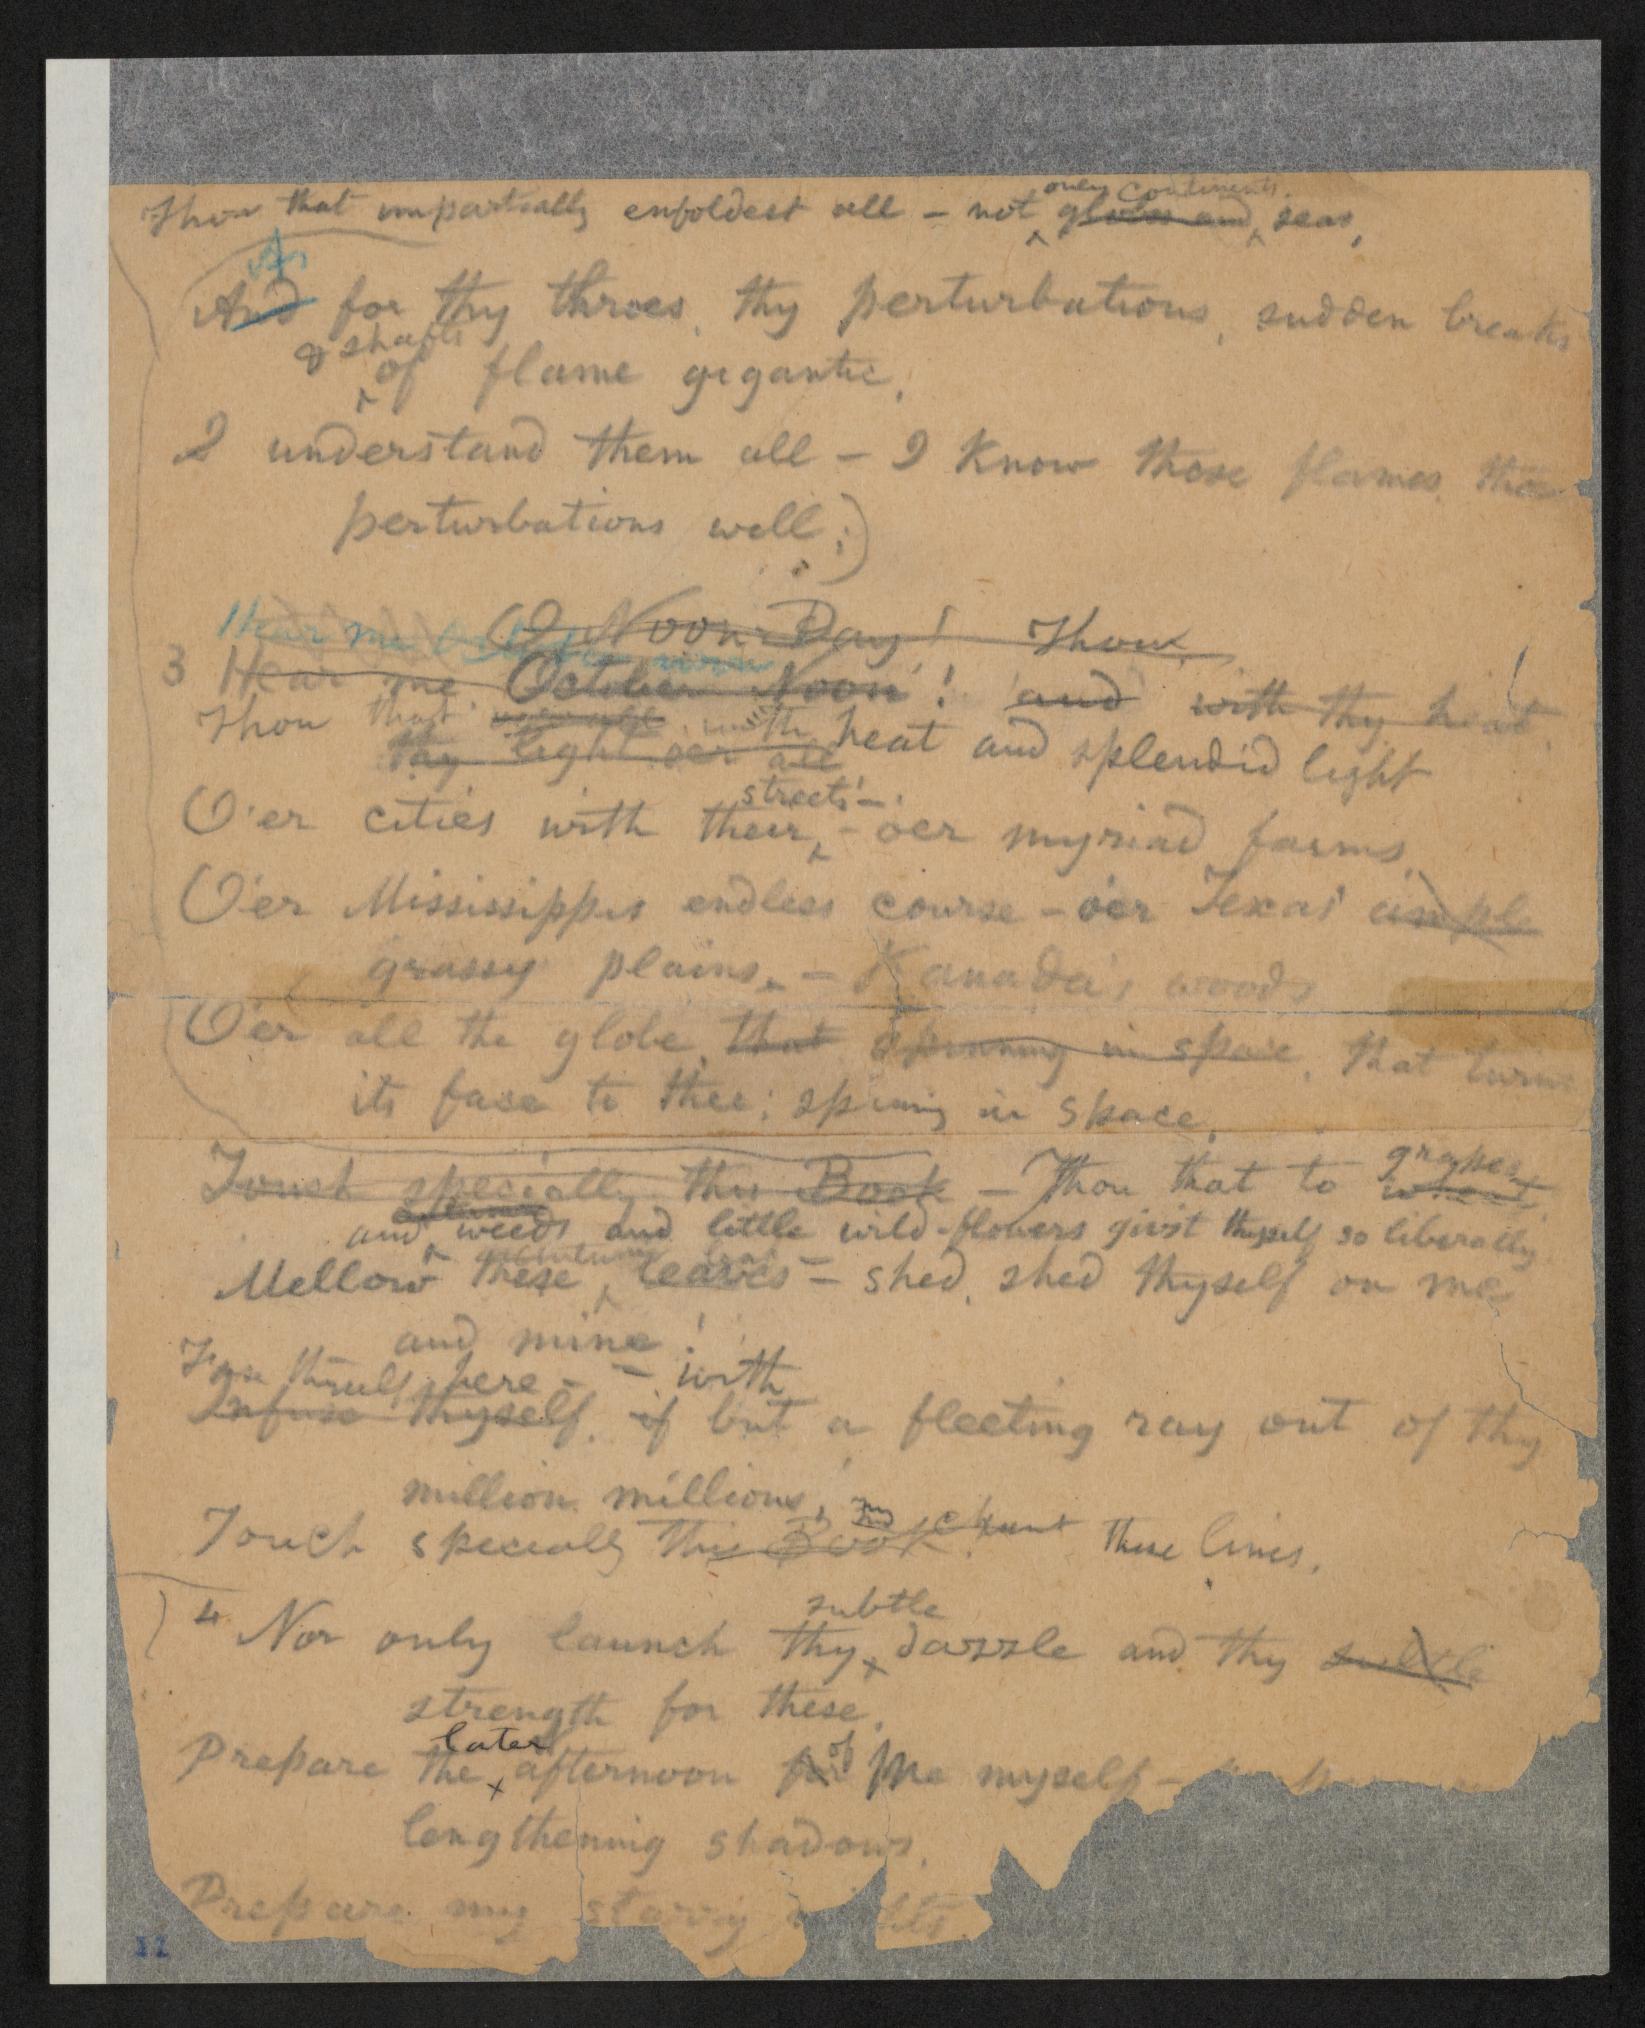 only continents
Thou that impartially enfoldest all – not globes and, seas,
As
And for thy throes, thy perturbations, sudden breaks
& shafts
of flame gigantic,
I understand them all – I know those flames, those
perturbations well;)
O Noon-Day! Thou
Hear me October noon
3 Hear me October Noon! and with thy heat
Thou that with heat and splendid light
thy light oer all
streets –
O'er cities with their, – oer myriad farms,
O'er Mississippi's endless course – o'er Texas' ample
grassy plains, – Kanada's woods
O'er all the globe, that spinning in space, that turns
its face to thee; spinning in space,
grapes
Touch specially this Book – Thou that to wheat
and weeds and little wild-flowers giv'st thyself so liberally
Mellow these leaves – shed, shed thyself on me
and mine!
Fuse thyself here – – with
Infuse thyself, if but a fleeting ray out of thy
million millions,
Touch specially this Book chant these lines.
subtle
4 Nor only launch thy dazzle and thy subtle
strength for these,
later
of
Prepare the afternoon for me myself –
lengthening shadows,
Prepare my starry